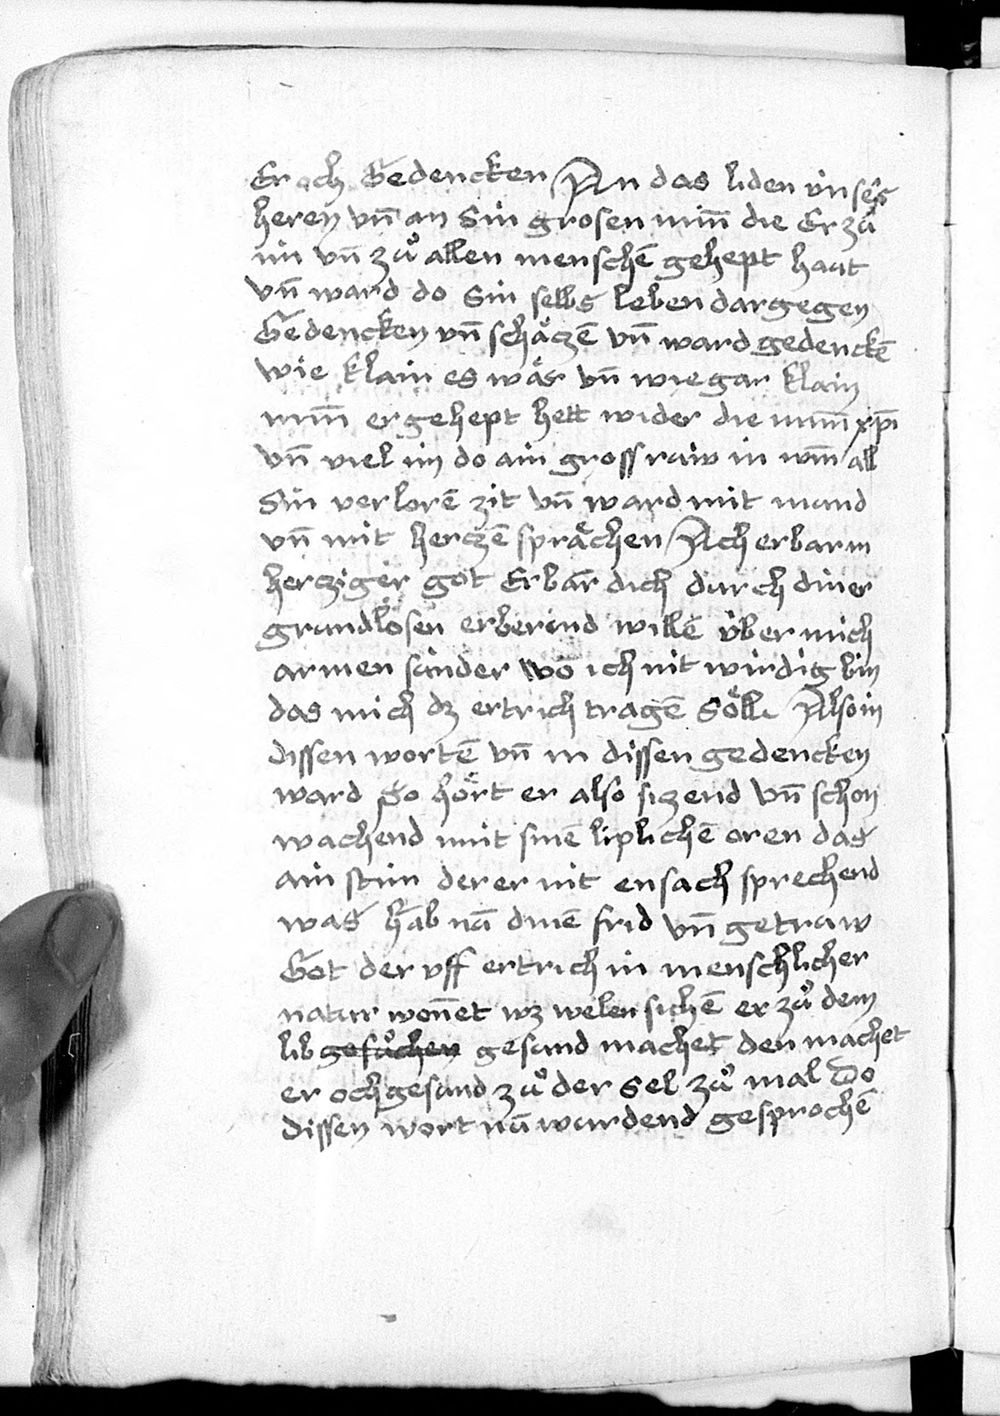 Er och Gedencken An das liden vnsers
heren vn̄ an Sin grosen min̄ die Er zů
im vn̄ zů allen menschē gehept haut
vn̄ ward do Sin selbs leben dargegen
Gedencken vn̄ schäczē vn̄ ward gedenckē
wie klain es wär vn̄ wie gar klain
min̄ er gehept hett wider die min̄ xp̄i
vn̄ viel im do ain gross raiw in vm̄ all
Sin verlorē zit vn̄ ward mit mund
vn̄ mit herczē sprächen Ach erbarm
hercziger got Erbar̄ dich durch diner
grundlösen erbermd willē über mich
armen sünder wō ich nit wirdig bin
das mich dz ertrich tragē Söll Also in
dissen wortē vn̄ in dissen gedencken
ward So hört er also siczend vn̄ schon
wachend mit sinē liplichē oren das
ain stim der er nit ensach sprechend
was hab nū dinē frid vn̄ getruw
Got der vff ertrich in menschlicher
natur won̄et wz welen siechē er zů dem
lib gesůchen gesund machet den machet
er och gesund zů der Sel zů mal Do
dissen wort nū wurdend gesprochē